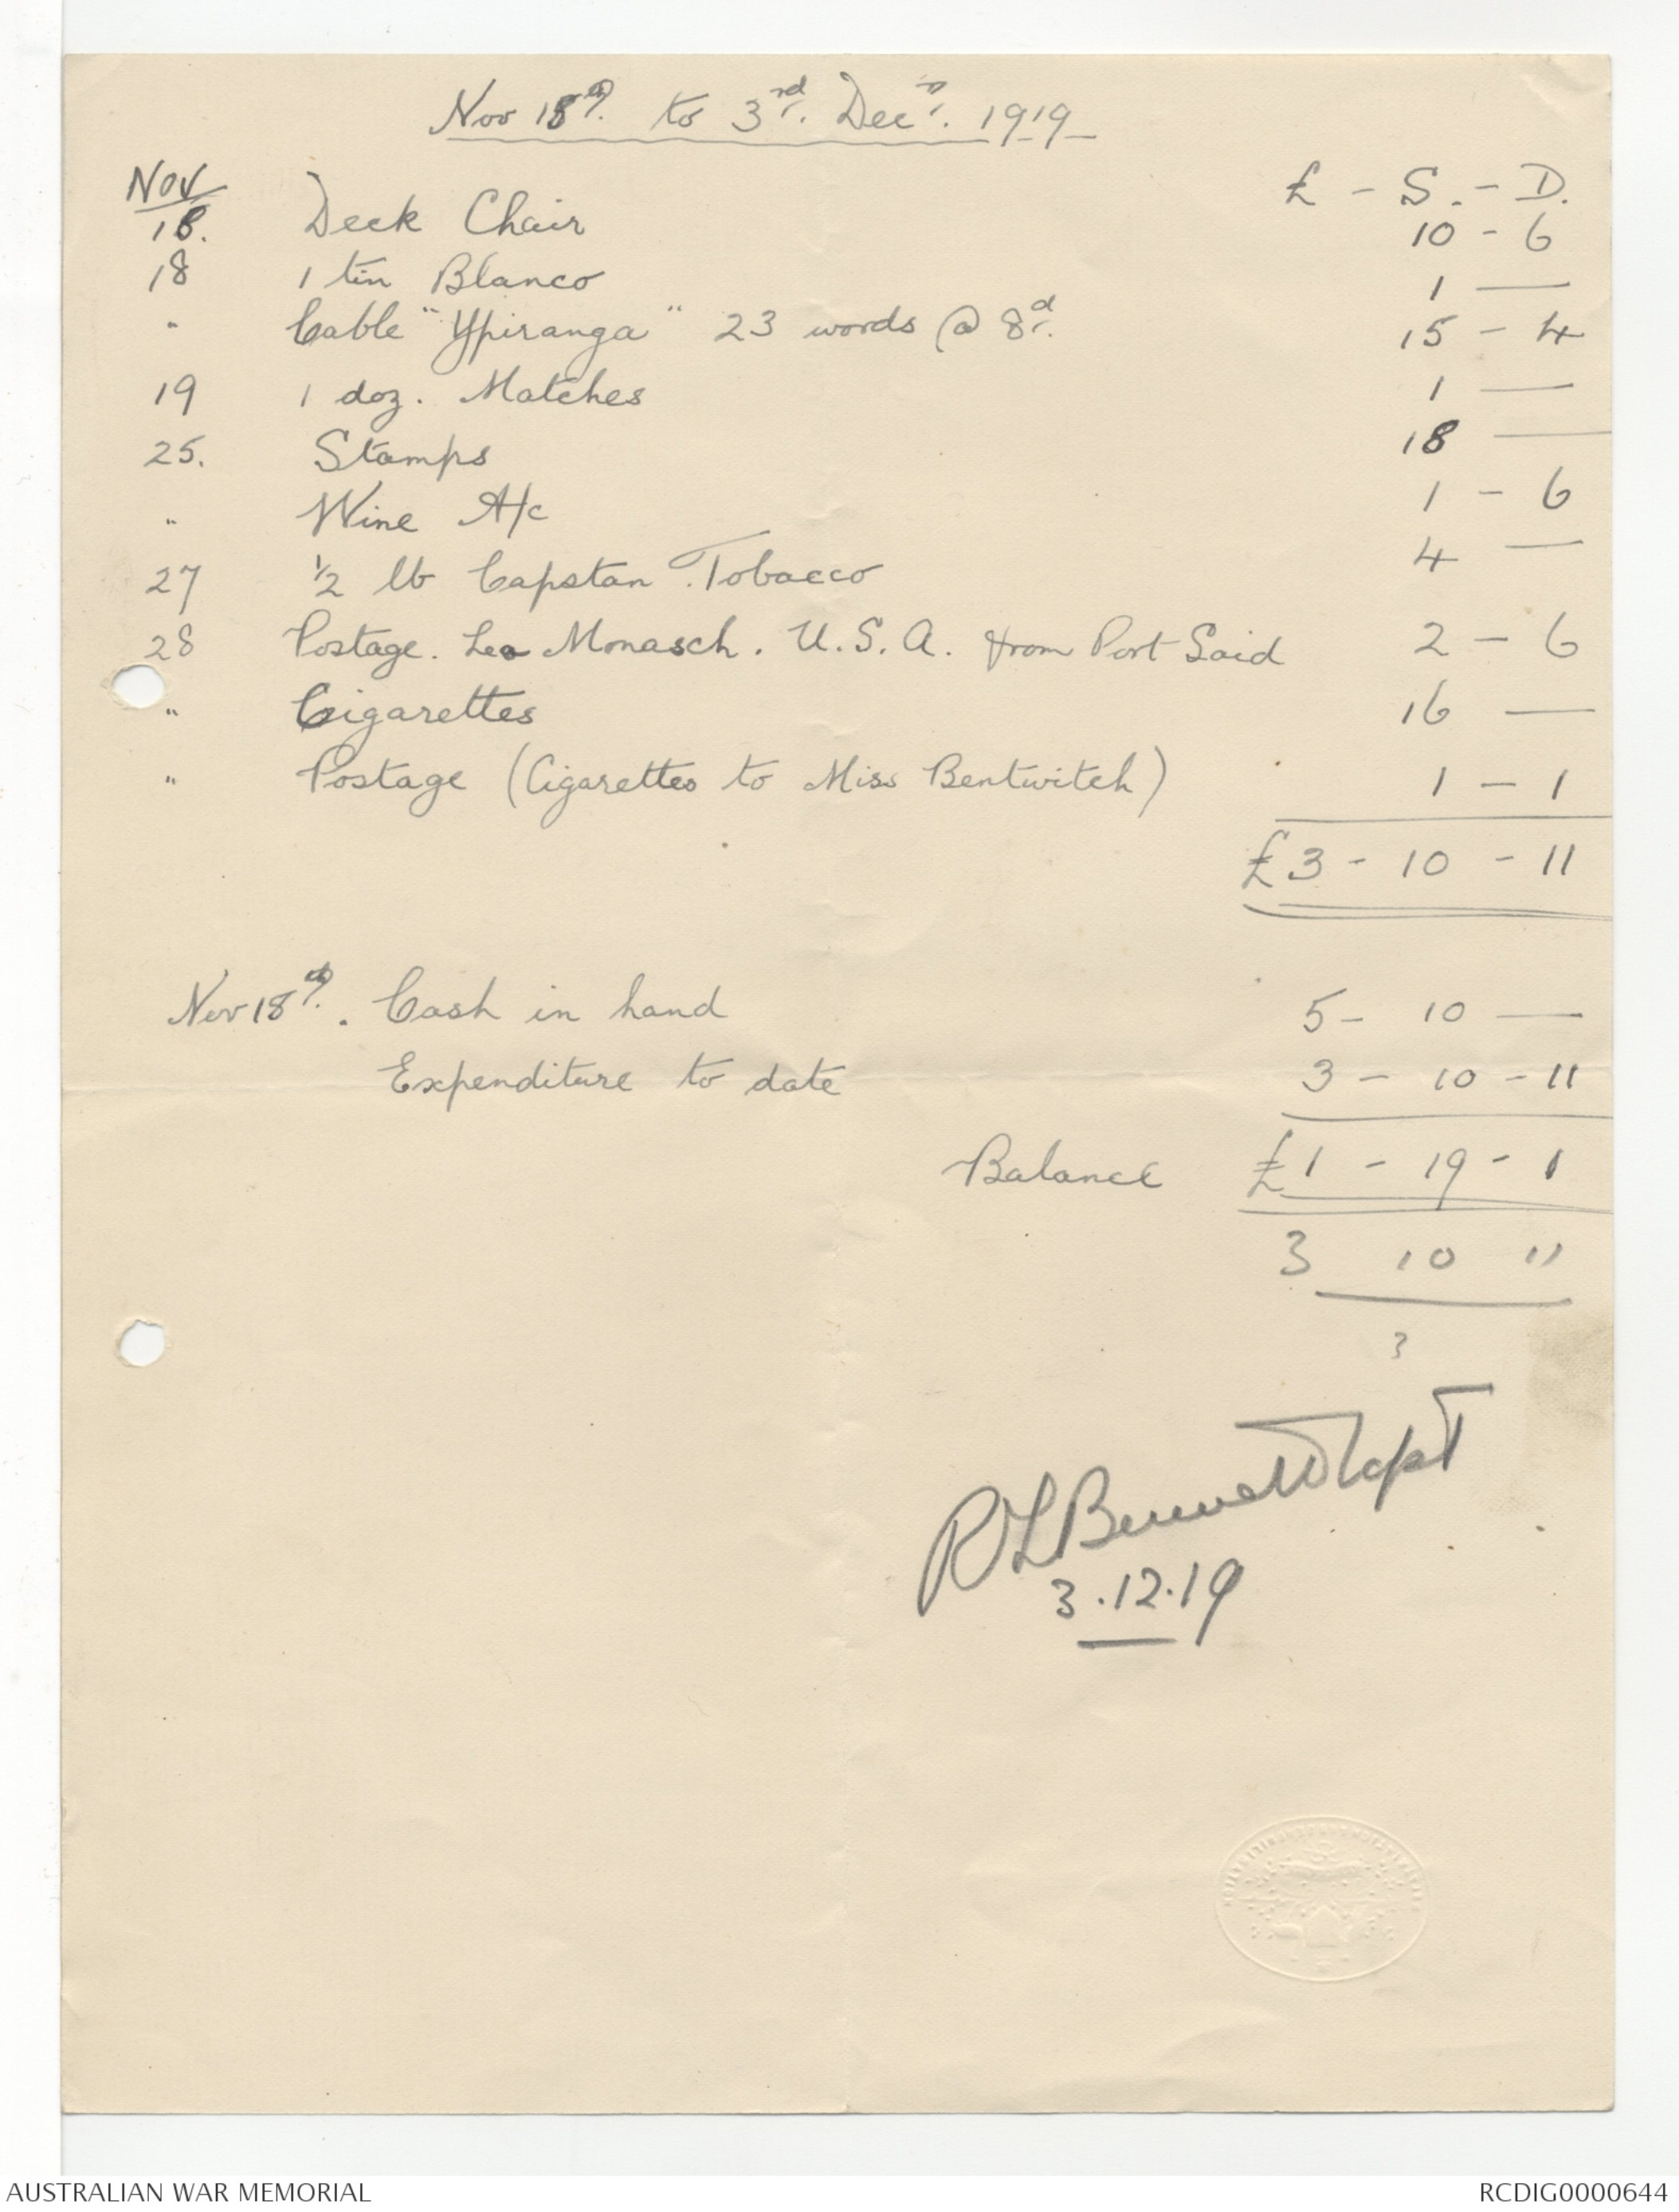 Nov 18th. to 3rd. Decr. 1919
Nov £ - S. - D.
18. Deck Chair 10 - 6
18 1 tin Blanco 1 —
" Cable "Ypiranga" 23 words @ 8d. 15 - 4
19 1 doz. Matches 1 —
25. Stamps 18 —
" Wine A/c 1 - 6
27 ½ lb Capstan Tobacco 4 —
28 Postage. Leo Monasch. U.S.A. from Port Said 2 - 6
" Cigarettes 16 —
" Postage (Cigarettes to Miss Bentwitch) 1 - 1
£3 - 10 - 11
Nov 18th. Cash in hand 5 - 10 —
Expenditure to date 3 - 10 - 11
Balance £1 - 19 - 1
3 10 11
3
R L Bennett Capt
3.12.19
AUSTRALIAN WAR MEMORIAL RCDIG0000644